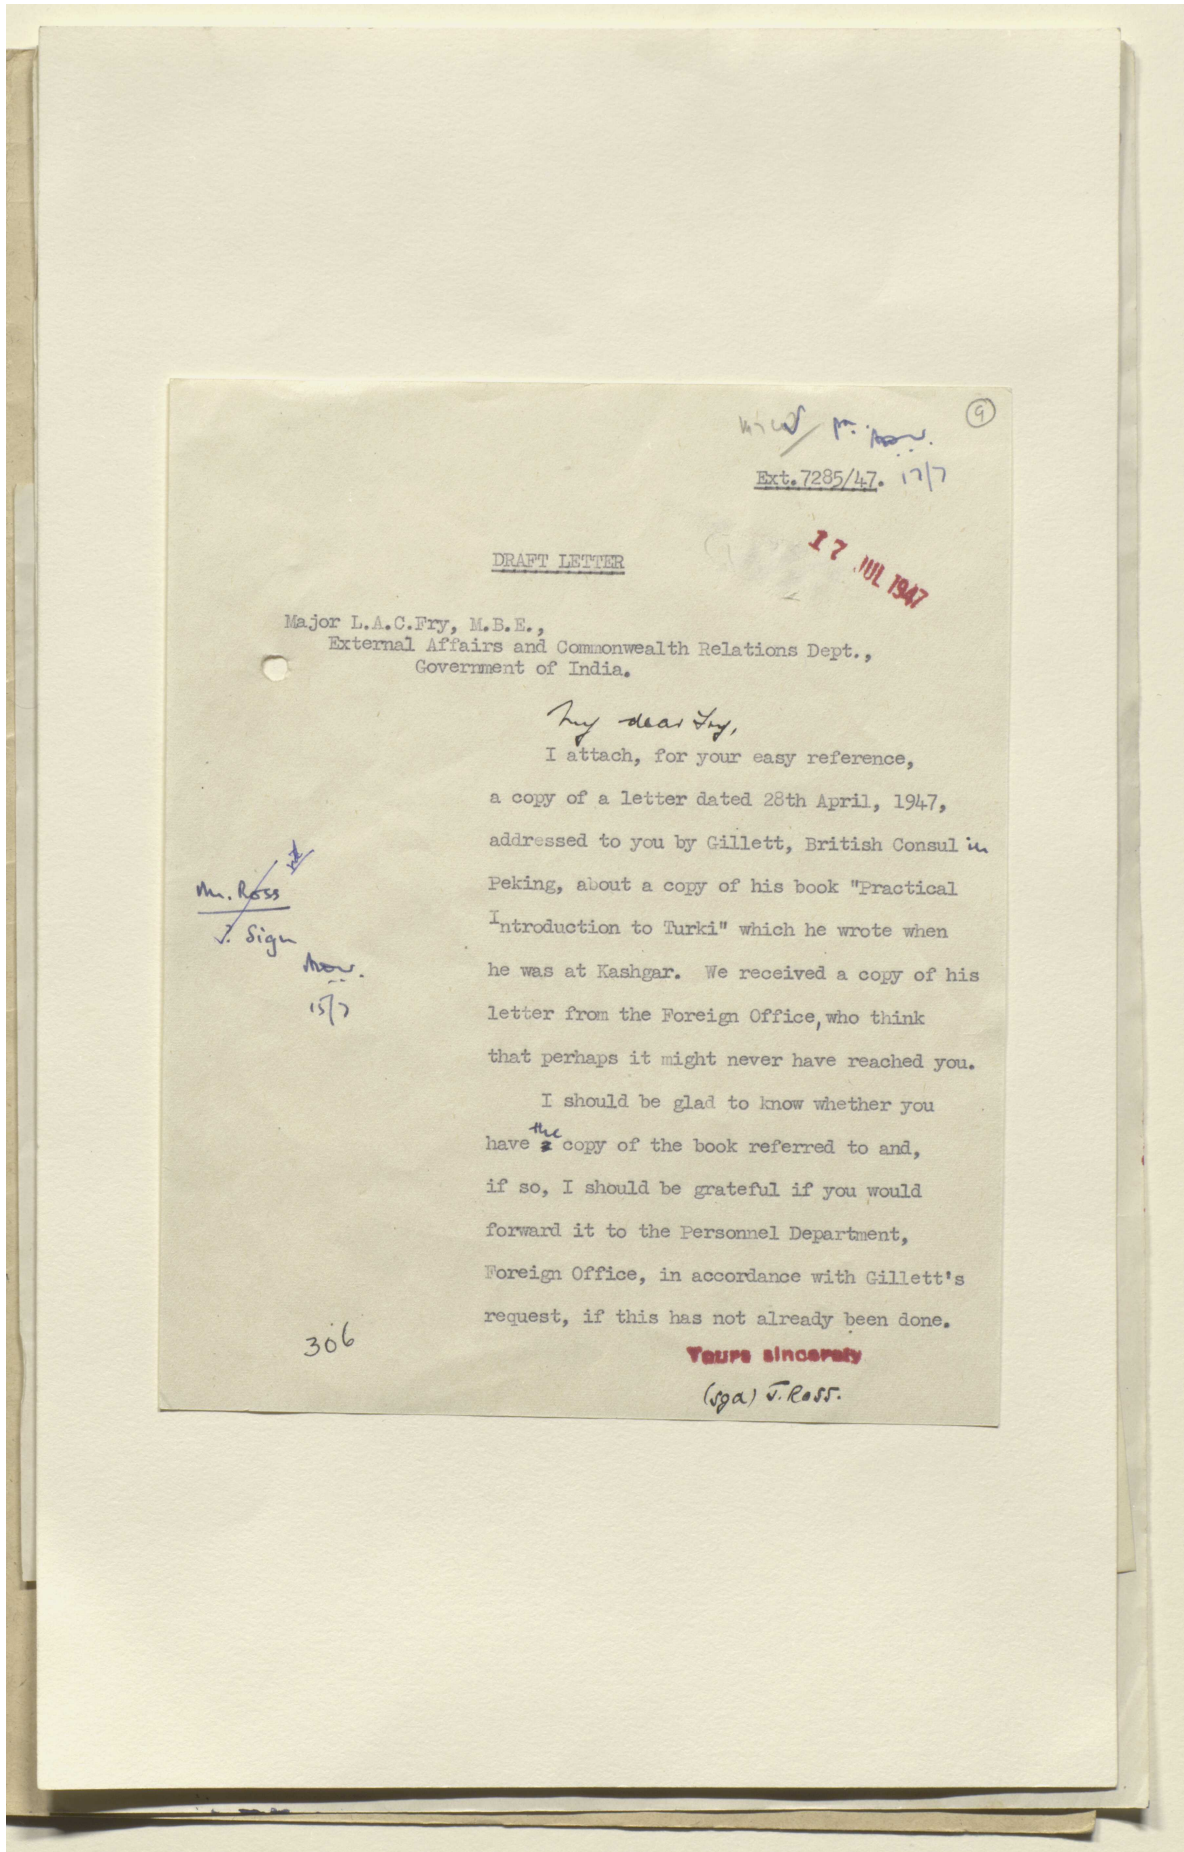 9
Ext.7285/47.
17/7
17 JUL 1947
DRAFT LETTER
Major L.A.C.Fry, M.B.E.,
External Affairs and Commonwealth Relations Dept.,
Government of India.
My dear Fry,
I attach, for your easy reference,
a copy of a letter dated 28th April, 1947,
addressed to you by Gillett, British Consul in
Peking, about a copy of his book "Practical
Introduction to Turki" which he wrote when
he was at Kashgar. We received a copy of his
letter from the Foreign Office, who think
that perhaps it might never have reached you.
I should be glad to know whether you
have the copy of the book referred to and,
if so, I should be grateful if you would
forward it to the Personnel Department,
Foreign Office, in accordance with Gillett's
request, if this has not already been done.
Yours sincerely
(sgd) J. Ross.
Mr. Ross
J. Sign
15/7
306